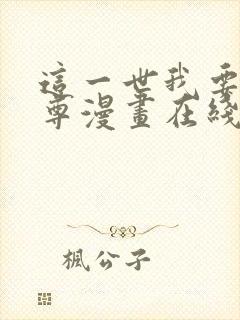 這一世我要
尊漫畫在綫
楓公子